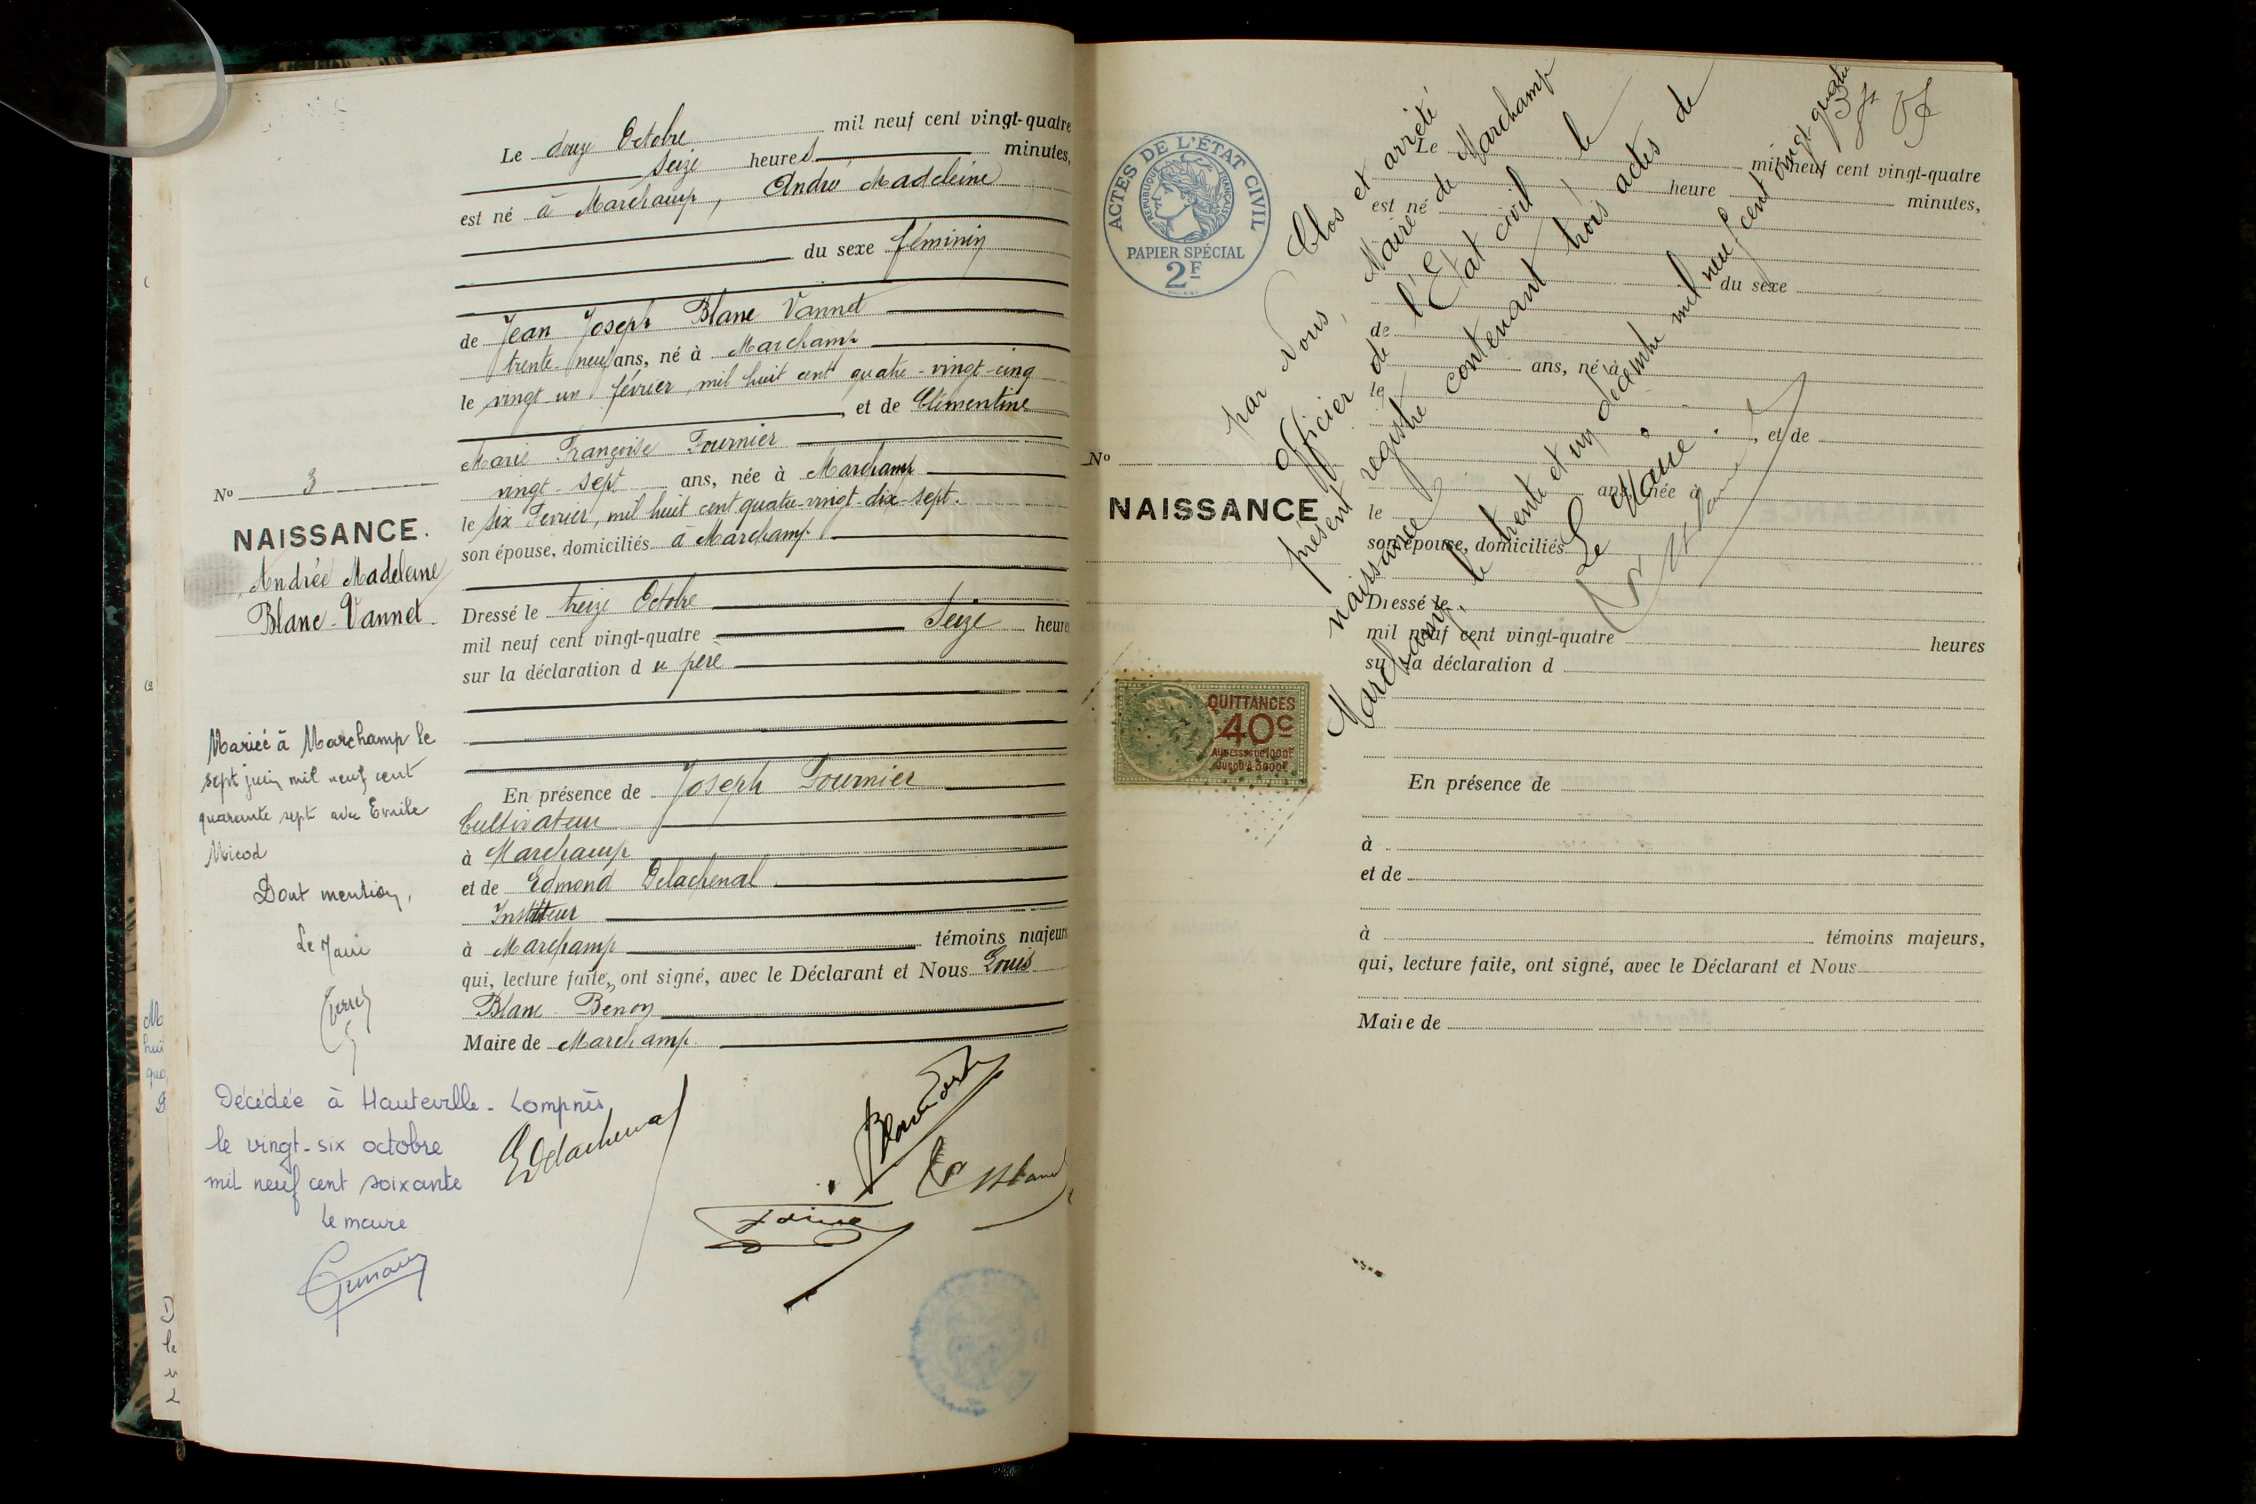 Le douze Octobre mil neuf cent vingt-quatre
seize heures minutes,
est né à Marchamp, André Madeleine
du sexe féminin
de Jean Joseph Blanc Vannet
trente-neuf ans, né à Marchamp
le vingt-un février, mil huit cent quatre-vingt-cinq
et de Clémentine
Marie Françoise Fournier
vingt-sept ans, née à Marchamp
le six Fevrier, mil huit cent quatre-vingt-dix-sept.
son épouse, domiciliés à Marchamp
Dressé le treize Octobre
mil neuf cent vingt-quatre Seize heure
sur la déclaration du père
En présence de Joseph Fournier
Cultivateur
à Marchamp
et de Edmond Delachenal
Instituteur
à Marchamp témoins majeurs
qui, lecture faite, ont signé, avec le Déclarant et Nous Louis
Blanc Benon
Maire de Marchamp
EDelachenal
No 3
NAISSANCE.
Andrée Madeleine
Blanc-Vannet.
Mariée à Marchamp le
sept juin mil neuf cent
quarante sept avec Emile
Micod
Dont mention,
Le Maire
Décédée à Hauteville-Lompnès
le vingt-six octobre
mil neuf cent soixante
le maire
ACTES DE L'ÉTAT CIVIL
RÉPUBLIQUE FRANÇAISE
PAPIER SPÉCIAL
2F
Clos et arrêté
par Nous, Maire de Marchamp
officier de l'Etat civil le
présent registre contenant trois actes de
naissance
Marchamp, le trente et un décembre mil neuf cent vingt-quatre
Le Maire.
Le mil neuf cent vingt-quatre
heure minutes,
est né
du sexe
de
ans, né à
le
, et de
ans, née à
le
son épouse, domiciliés
Dressé le
mil neuf cent vingt-quatre heures
sur la déclaration d
En présence de
à
et de
à témoins majeurs,
qui, lecture faite, ont signé, avec le Déclarant et Nous
Maire de
No
NAISSANCE
QUITTANCES
40c
AU DESSUS DE 1000F
JUSQU'À 3000F